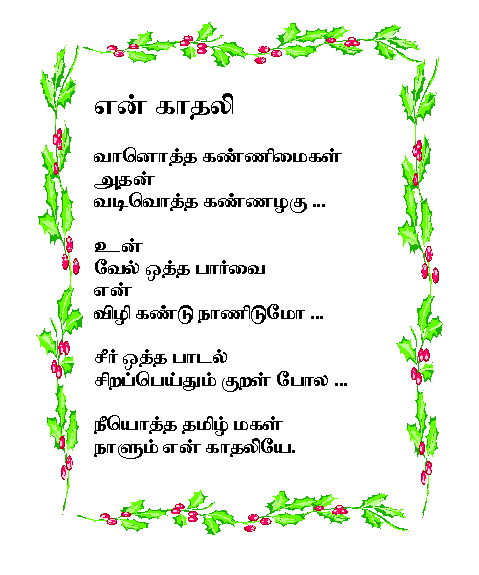 என் காதலி
வானொத்த கண்ணிமைகள்
அதன்
வடிவொத்த கண்ணழகு ...
உன்
வேல் ஒத்த பார்வை
என்
விழி கண்டு நாணிடுமோ ...
சீர் ஒத்த பாடல்
சிறப்பெய்தும் குறள் போல ...
நீயொத்த தமிழ் மகள்
நாளும் என் காதலியே.